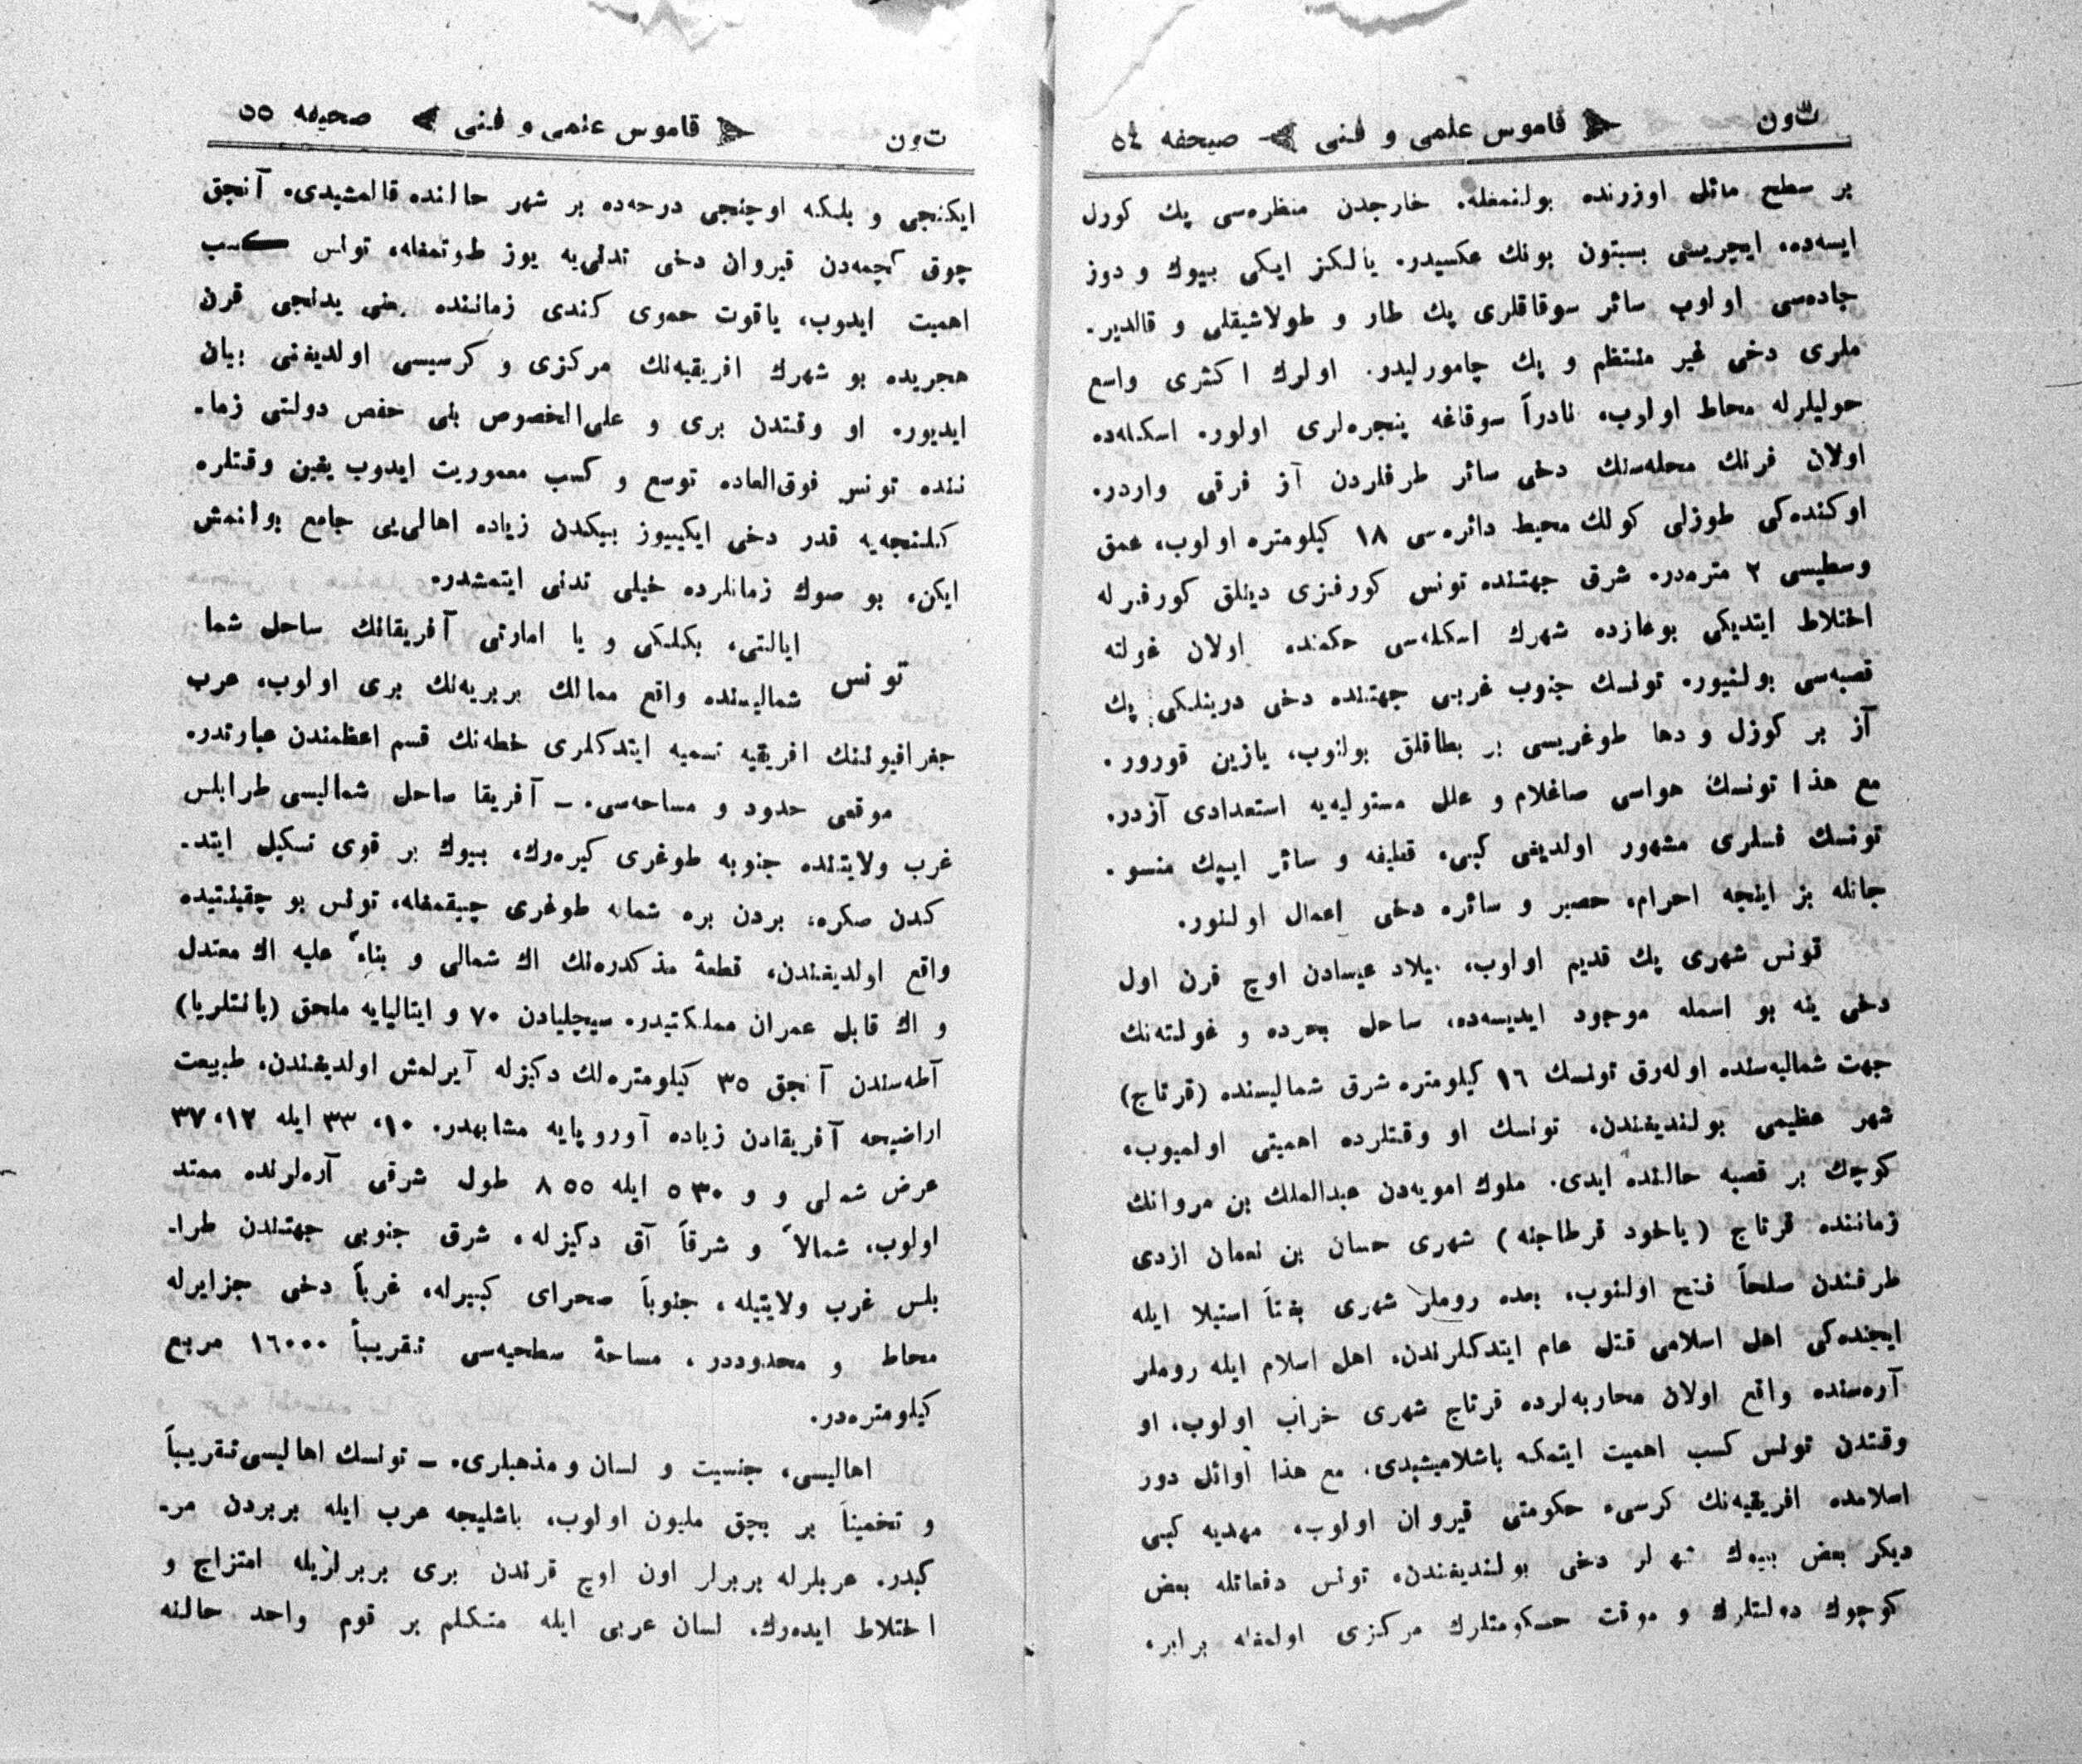 تون قاموس علمی و فنی صیحفه ٥٤
بر سطح مائل اوزرنده بولنمغله، خارجدن منظره‌سی پك كوزل
ایسه‌ده، ایچریسی بسبتون بونك عكسیدر. یالكز ایكی بیوك و دوز
جاده‌سی اولوب سائر سوقاقلری پك طار و طولاشیقلی و قالدیر.
ملری دخی غیر منتظم و پك چامورلیدر. اولرك اكثری واسع
حولیلرله محاط اولوب، نادراً سوقاغه پنجره‌لری اولور. اسكله‌ده
اولان فرنك محله‌سنك دخی سائر طرفلردن آز فرقی واردر.
اوكنده‌كی طوزلی كولك محیط دائره‌سی ١٨ كیلومتره اولوب، عمق
وسطیسی ٢ متره‌در. شرق جهتنده تونس كورفزی دینلن كورفزله
اختلاط ایتدیكی بوغازده شهرك اسكله‌سی حكمنده اولان غولته
قصبه‌سی بولنیور. تونسك جنوب غربی جهتنده دخی پك
آز بر كوزل و دها طوغریسی بر بطاقلق بولنوب، یازین قورور.
مع هذا تونسك هواسی صاغلام و علل مستولیه‌یه استعدادی آزدر.
تونسك فسلری مشهور اولدیغی كبی، قطیفه و سائر ایپك منسو.
جاتله بز اینجه احرام، حصیر و سائره دخی اعمال اولنور.
تونس شهری پك قدیم اولوب، میلاد عیسادن اوچ قرن اول
دخی ینه بو اسمله موجود ایدیسه‌ده، ساحل بحرده و غولته‌نك
جهت شمالیه‌سنده اوله‌رق تونسك ١٦ كیلومتره شرق شمالیسنده (قرتاج)
شهر عظیمی بولندیغندن، تونسك او وقتلرده اهمیتی اولمیوب،
كوچك بر قصبه حالنده ایدی. ملوك امویه‌دن عبدالملك بن مروانك
زماننده قرتاج (یاخود قرطاجنه) شهری حسان بن نعمان ازدی
طرفندن صلحاً فتح اولنوب، بعده روملر شهری بغتاً استیلا ایله
ایچنده‌كی اهل اسلامی قتل عام ایتدكلرندن، اهل اسلام ایله روملر
آره‌سنده واقع اولان محاربه‌لرده قرتاج شهری خراب اولوب، او
وقتدن تونس كسب اهمیت ایتمكه باشلامیشیدی. مع هذا اوائل دور
اسلامده افریقیه‌نك كرسیء حكومتی قیروان اولوب، مهدیه كبی
دیكر بعض بیوك شهرلر دخی بولندیغندن، تونس دفعاتله بعض
كوچوك دولتلرك و موقت حكومتلرك مركزی اولمغله برابر،
تون قاموس علمی و فنی صحیفه ٥٥
ایكنجی و بلكه اوچنجی درجه‌ده بر شهر حالنده قالمشیدی، آنجق
چوق كچمه‌دن قیروان دخی تدنی‌یه یوز طوتمغله، تونس كسب
اهمیت ایدوب، یاقوت حموی كندی زماننده یعنی یدنجی قرن
هجریده بو شهرك افریقیه‌نك مركزی و كرسیسی اولدیغنی بیان
ایدیور. او وقتدن بری و علی‌الخصوص بنی حفص دولتی زما.
ننده تونس فوق‌العاده توسع و كسب معموریت ایدوب یقین وقتلره
كلنجه‌یه قدر دخی ایكییوز بیكدن زیاده اهالی‌یی جامع بولنمش
ایكن، بو صوك زمانلرده خیلی تدنی ایتمشدر.
تونس ایالتی، بكلكی و یا امارتی آفریقانك ساحل شما
شمالیسنده واقع ممالك بربریه‌نك بری اولوب، عرب
جغرافیوننك افریقیه تسمیه ایتدكلری خطه‌نك قسم اعظمندن عبارتدر.
موقعی حدود و مساحه‌سی. ــ آفریقا ساحل شمالیسی طرابلس
غرب ولایتنده جنوبه طوغری كیره‌رك، بیوك بر قوی تشكیل ایتد.
كدن صكره، بردن بره شماله طوغری چیقمغله، تونس بو چقینتیده
واقع اولدیغندن، قطعهٔ مذكوره‌نك اك شمالی و بناءً علیه اك معتدل
و اك قابل عمران مملكتیدر. سیچلیادن ٧٠ و ایتالیایه ملحق (پانتلریا)
آطه‌سندن آنجق ٣٥ كیلومتره‌لك دكیزله آیرلمش اولدیغندن، طبیعت
اراضیجه آفریقادن زیاده آوروپایه مشابهدر. ١٠، ٣٣ ایله ١٢، ٣٧
عرض شمالی و و ٣٠ ٥ ایله ٥٥ ٨ طول شرقی آره‌لرنده ممتد
اولوب، شمالاً و شرقاً آق دكیزله، شرق جنوبی جهتندن طرا.
بلس غرب ولایتیله، جنوباً صحرای كبیرله، غرباً دخی جزایرله
محاط و محدوددر، مساحهٔ سطحیه‌سی تقریباً ١٦٠٠٠ مربع
كیلومتره‌در.
اهالیسی، جنسیت و لسان و مذهبلری. ــ تونسك اهالیسی تقریباً
و تخمیناً بر بچق ملیون اولوب، باشلیجه عرب ایله بربردن مر.
كبدر. عربلرله بربرلر اون اوچ قرندن بری بربرلریله امتزاج و
اختلاط ایده‌رك، لسان عربی ایله متكلم بر قوم واحد حالنه